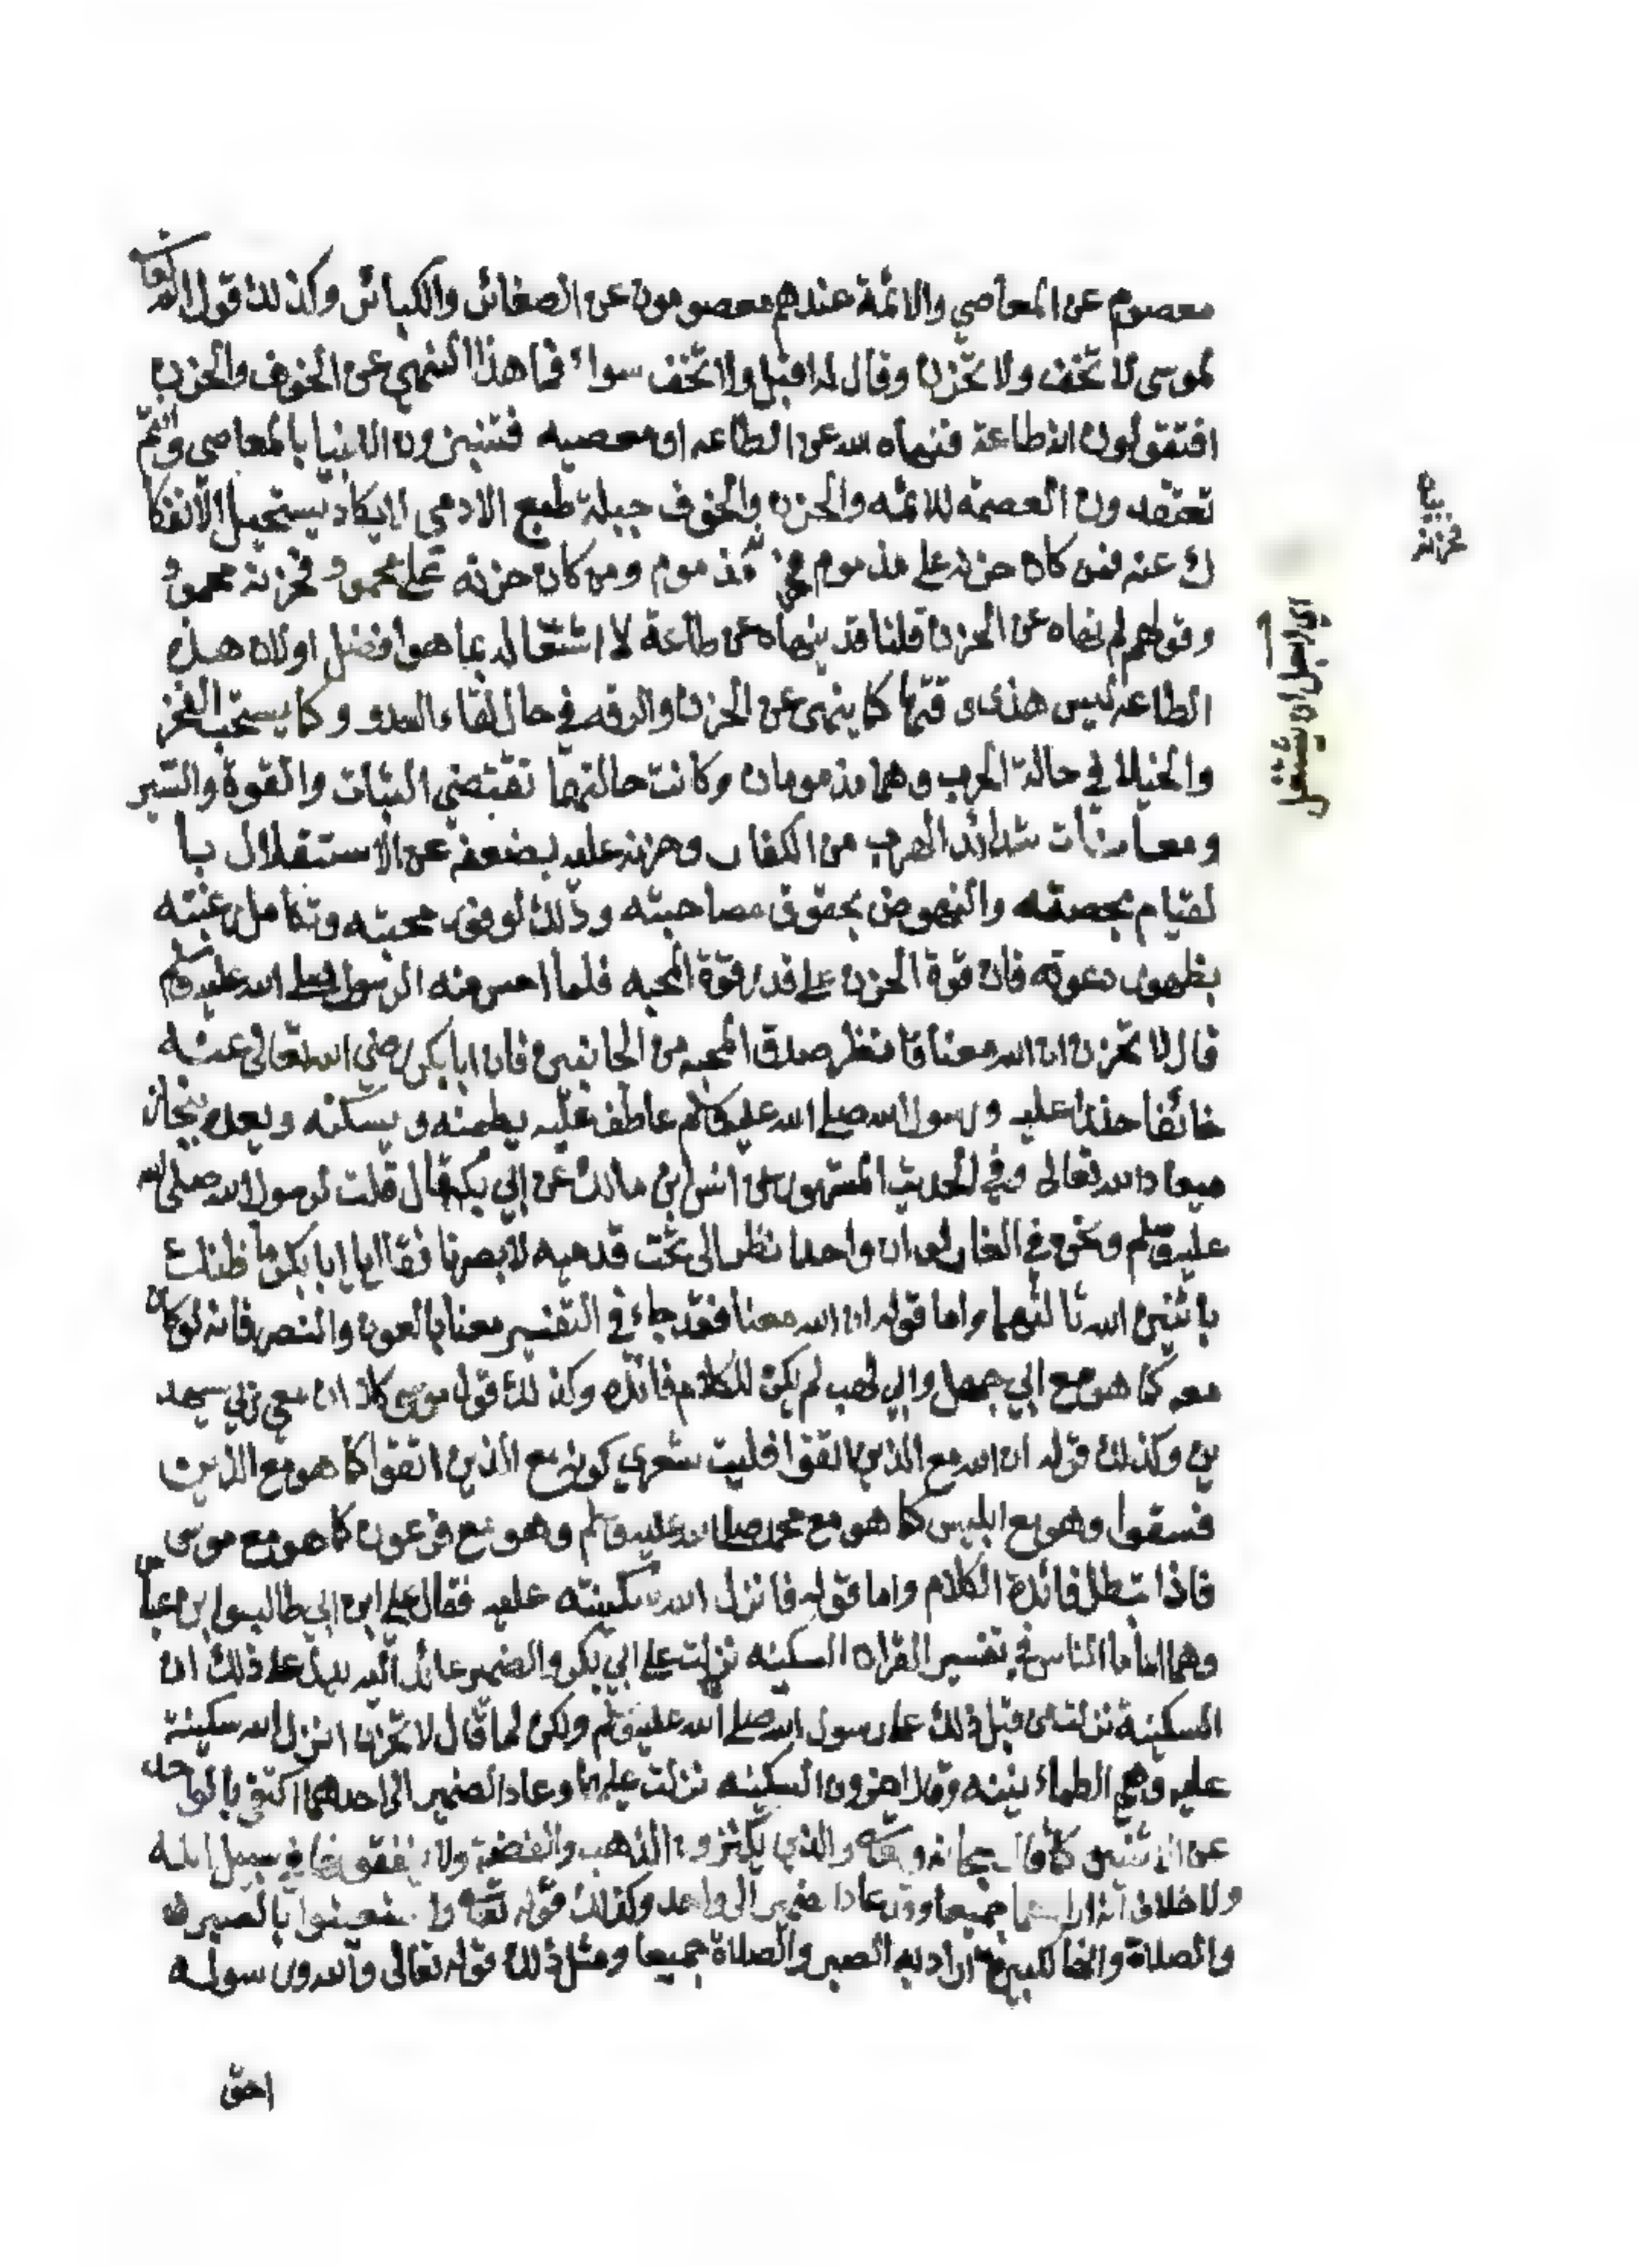 معصوم عن المعاصي والائمة عندهم معصومون عن الصغائر والكبائر وكذلك قول الله تعا
لموسى لا تخف ولا تحزن وقال له اقبل ولا تخف سواء فما هذا النهي عن الخوف والحزن
افتقولون انه طاعة فنهاه الله عن الطاعه او معصيه فتنبزون الانبيا بالمعاصي وانتم
تعتقدون العصمة للائمه والحزن والخوف جبيلة طبع الادمي لا يكاد يستحيل الانفكا
ك عنه فمن كان حزنه على مذموم مذموم ومن كان حزنه على محمود فحزنه محمود
وقولهم لم نهاه عن الحزن قلنا قد ينهاه عن طاعة لاشتغاله بما هو افضل اولان هذه
الطاعه ليس هذه وقتها كما ينهى عن الحزن والرقه في حال لقاء العدو وكما يستحب الفخر
والخيلا في حالة الحرب وهما مذمومان وكانت حالتهما تقتضي الثبات والقوة والتستر
ومعا شدائد الهرب من الكفار وحزنه عليه يضعفه عن الاستقلال با
لقيام بحصته والنهوض بحقوق مصاحبته وذلك لوفور محبته وتكامل رغبته
بظهور دعوته فان قوة الحزن على قدر قوة المحبه فلما احس منه الرسول صلى الله عليه وسلم
قال لا تحزن ان الله معنا فانظر صدق المحبه من الجانبين فان ابا بكر رضي الله تعالى عنه
خائفا حذرا عليه ورسول الله صلى الله عليه وسلم عاطف عليه يطمنه ويسكنه ويعده بنجاز
ميعاد الله تعالى وفي الحديث المشهور عن انس بن مالك عن ابي بكر قال قلت لرسول الله صلى الله
عليه وسلم ونحن في الغار لو ان واحدا نظر الى تحت قدميه لابصرنا فقال يا ابا بكر ما ظنك
باثنين الله ثالثهما واما قوله ان الله معنا فقد جاء في التفسير معنا بالعون والنصر فانه لو كان
معه كما هو مع ابي جهل وابي لهب لم يكن للكلام فائده وكذلك قول موسى كلا ان معي ربي سيهد
ين وكذلك قوله ان الله مع الذين اتقوا فليت شعري كونه مع الذين اتقوا كما هو مع الذين
فسقوا وهو مع ابليس كما هو مع محمد صلى الله عليه وسلم وهو مع فرعون كما هو مع موسى
فاذا تبطل فائدة الكلام واما قوله فانزل الله سكينته عليه فقال علي ابن ابي طالب وابن عباس
وهما اماما الناس في تفسير القران السكينه نزلت على ابي بكر والضمير عائد اليه يدل على ذلك ان
السكينة نزلت من قبل ذلك على رسول الله صلى الله عليه وسلم ولكن لما قال لا تحزن انزل الله سكينة
عليه وهي الطماء نينه وقال اخرون السكينه نزلت عليهما وعاد الضمير الى احدهما اكتفى بالواحد
عن الاثنين كما قال سبحانه والذين يكنزون الذهب والفضة ولا ينفقونها في سبيل الله
ولا خلاف انه ارا جميعا وقد عاد الضمير الى واحد وكذلك قوله تعا واستعينوا بالصبر
والصلاة وانها لكبيرة اراد به الصبر والصلاة جميعا ومثل ذلك قوله تعالى والله ورسوله
احق
بيان
فحزنه
اي لاجل ان يشتغل